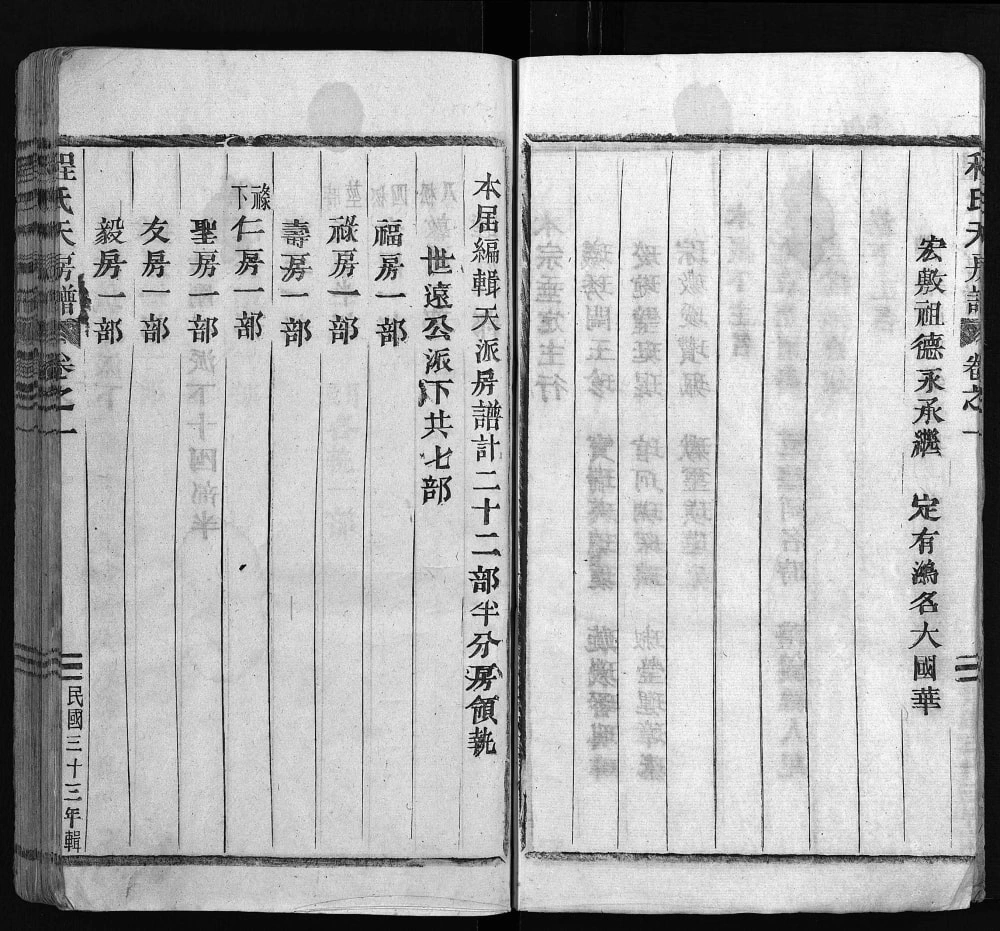 宏敷祖德永承繼　定有鴻名大國華
本屆編輯天派房譜計二十二部半分房領執
世遠公派下共七部
福房一部
祿房一部
壽房一部
祿下仁房一部
聖房一部
友房一部
毅房一部
程氏天房譜　卷之一　民國三十三年輯